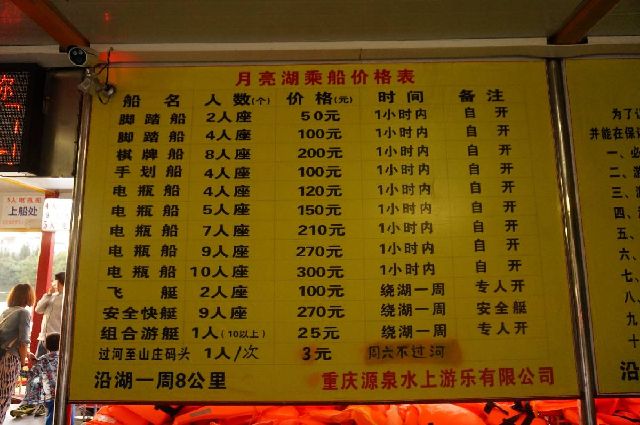 月亮湖乘船价格表
船名 人数(个) 价格(元) 时间 备注
脚踏船 2人座 50元 1小时内 自开
脚踏船 4人座 100元 1小时内 自开
棋牌船 8人座 200元 1小时内 自开
手划船 4人座 100元 1小时内 自开
电瓶船 4人座 120元 1小时内 自开
电瓶船 5人座 150元 1小时内 自开
电瓶船 7人座 210元 1小时内 自开
电瓶船 9人座 270元 1小时内 自开
电瓶船 10人座 300元 1小时内 自开
飞艇 2人座 100元 绕湖一周 专人开
安全快艇 9人座 270元 绕湖一周 安全艇
组合游艇 1人(10以上) 25元 绕湖一周 专人开
过河至山庄码头 1人/次 3元 周六不过河
沿湖一周8公里 重庆源泉水上游乐有限公司
上船处
为了
并能在保
一、必
二、游
三、游
四、
五、
六、
七、
八、
九、
十
沿